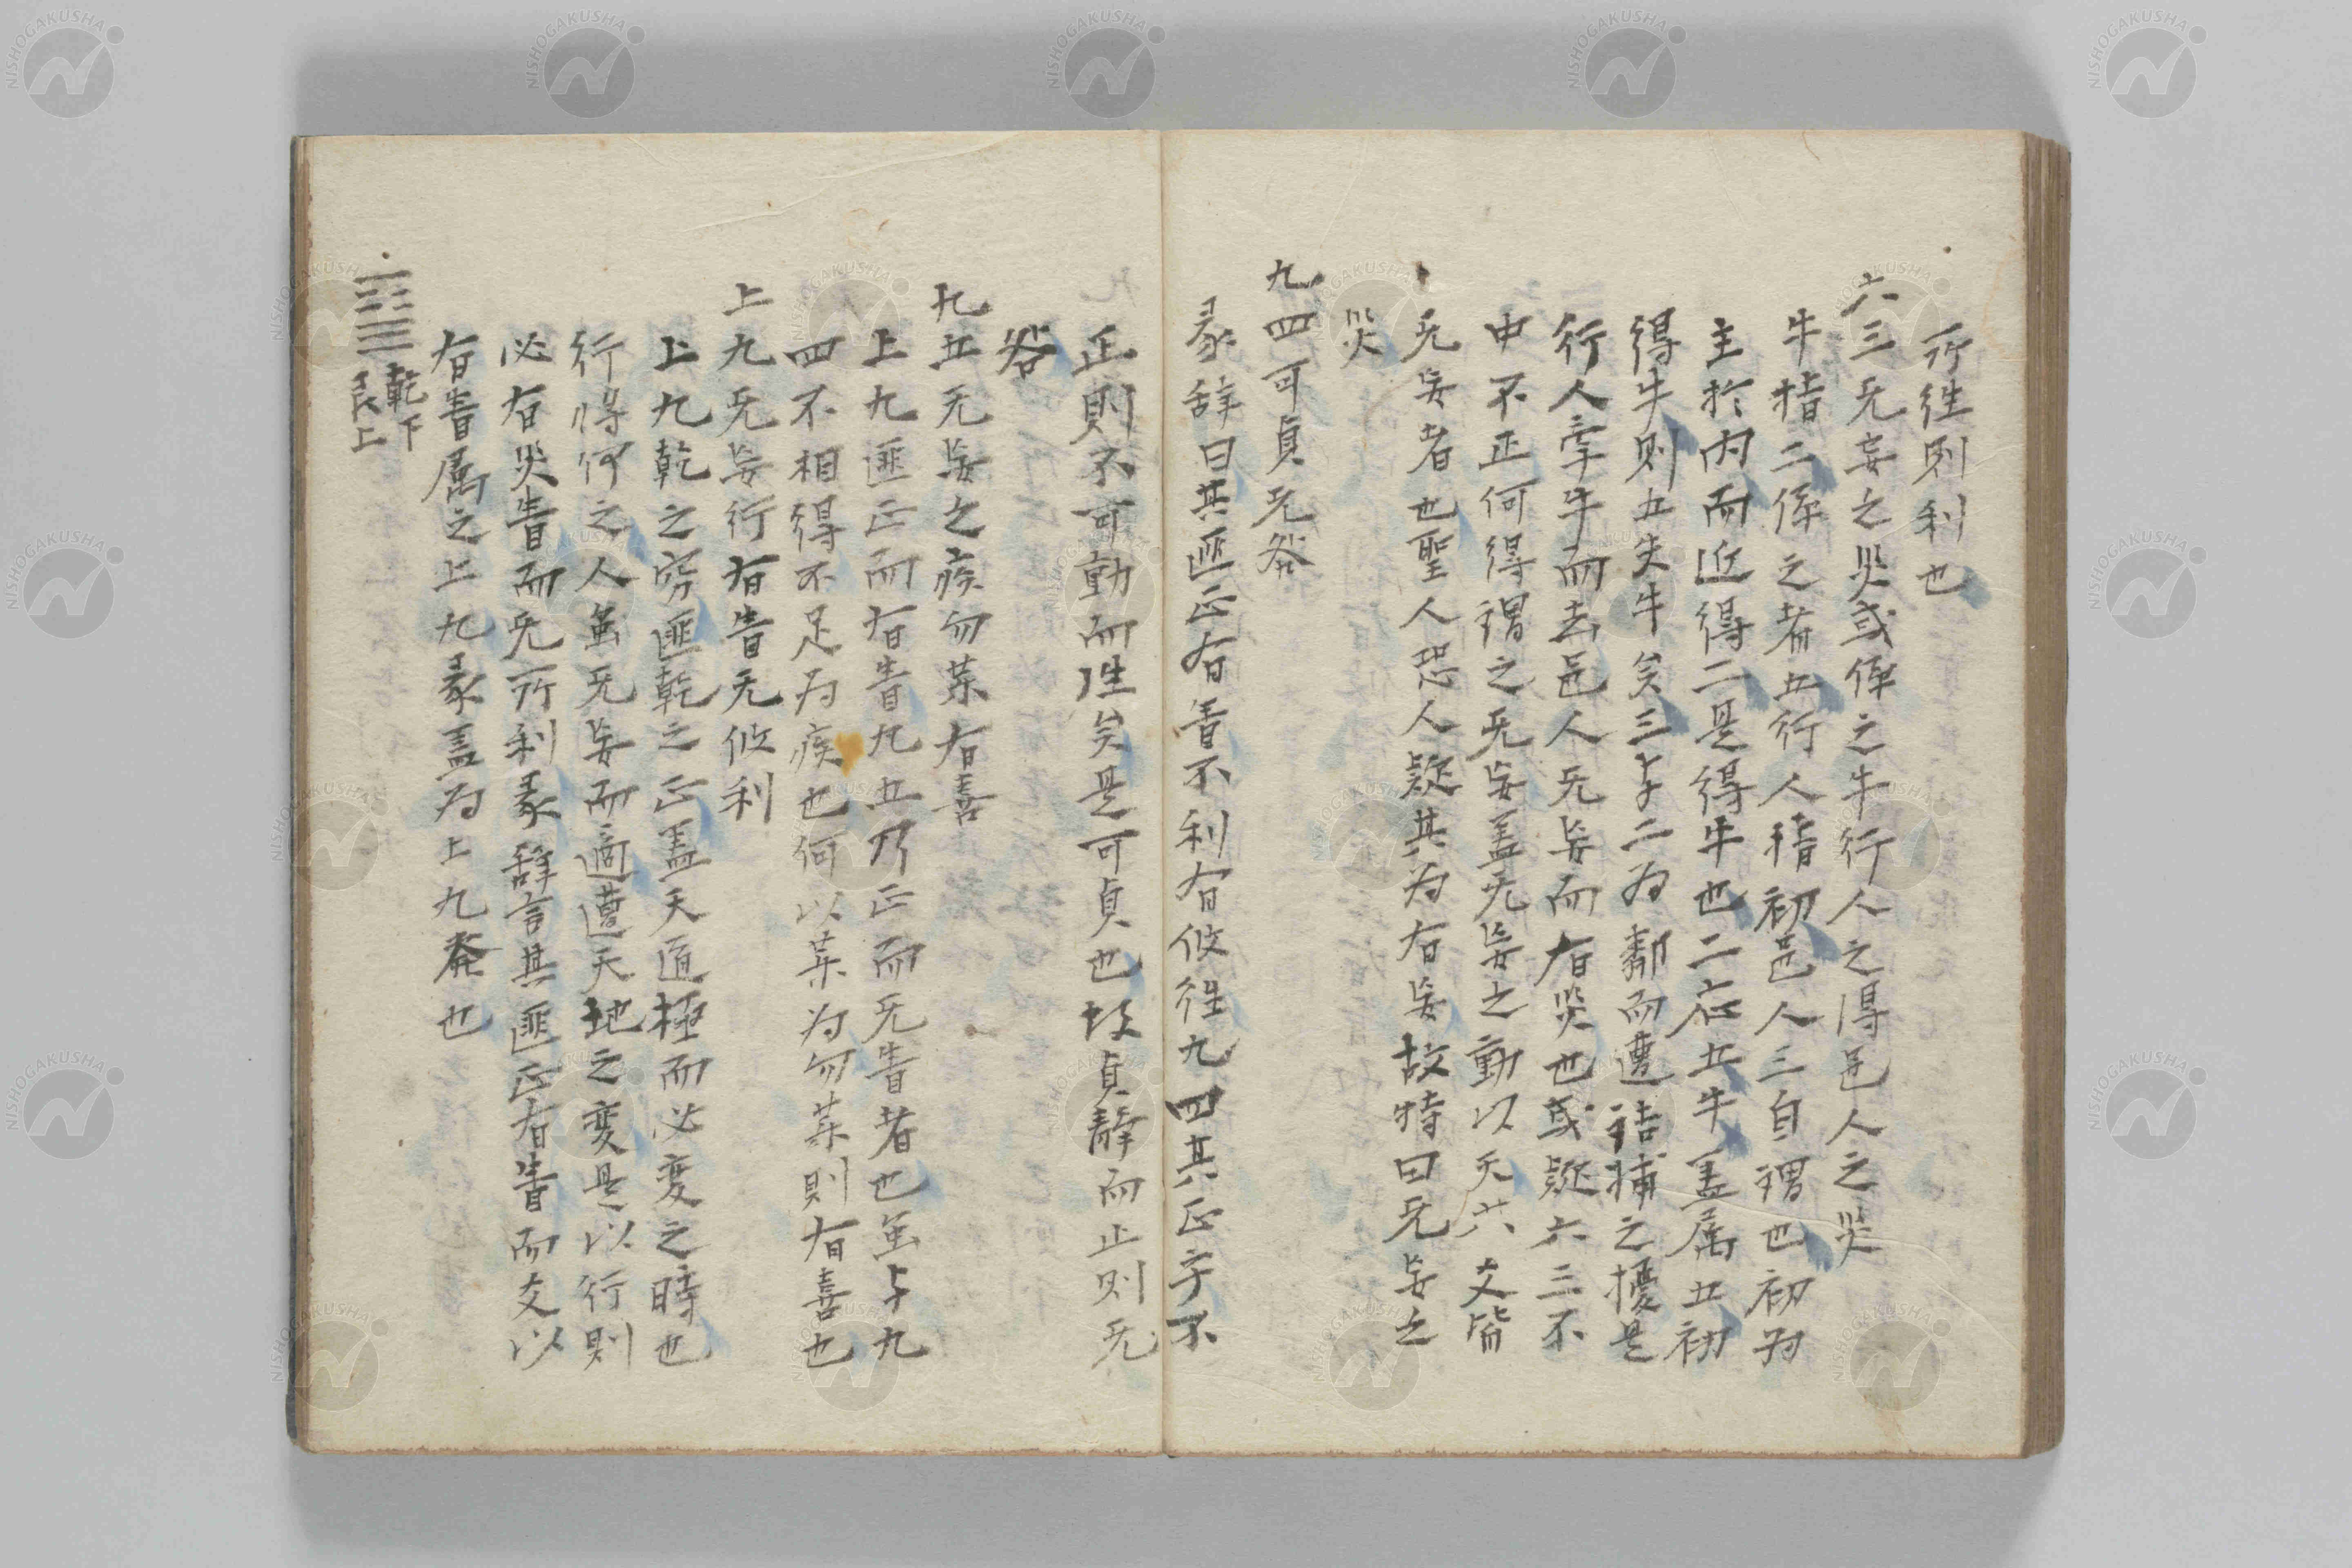 所徃則利也
六三无妄之災或係之牛行人之得邑人之災
牛指二係之者五行人指初邑人三自謂也初為
主於内而近得二是得牛也二応五牛盖属五初
得牛則五失牛矣三与二為鄰而遭詰捕之擾是
行人牽牛而去邑人无妄而有災也或疑六三不
中不正何得謂之无妄盖无妄之動以天六爻皆
无妄者也聖人恐人疑其為有妄故特曰无妄之
災
九四可貞无咎
彖辞曰其匪正有眚不利有攸徃九四其正乎不
正則不可動而徃矣是可貞也故貞静而止則无
咎
九五无妄之疾勿薬有喜
上九匪正而有眚九五乃正而无眚者也虽与九
四不相得不足为疾也何以薬为勿薬則有喜也
上九无妄行有眚无攸利
上九乾之窮匪乾之正盖天道極而必変之時也
行将何之人虽无妄而適遭天地之変是以行則
必有災眚而无所利彖辞言其匪正有眚而爻以
有眚属之上九彖盖为上九發也
䷙乾下艮上
NISHOGAKUSHA